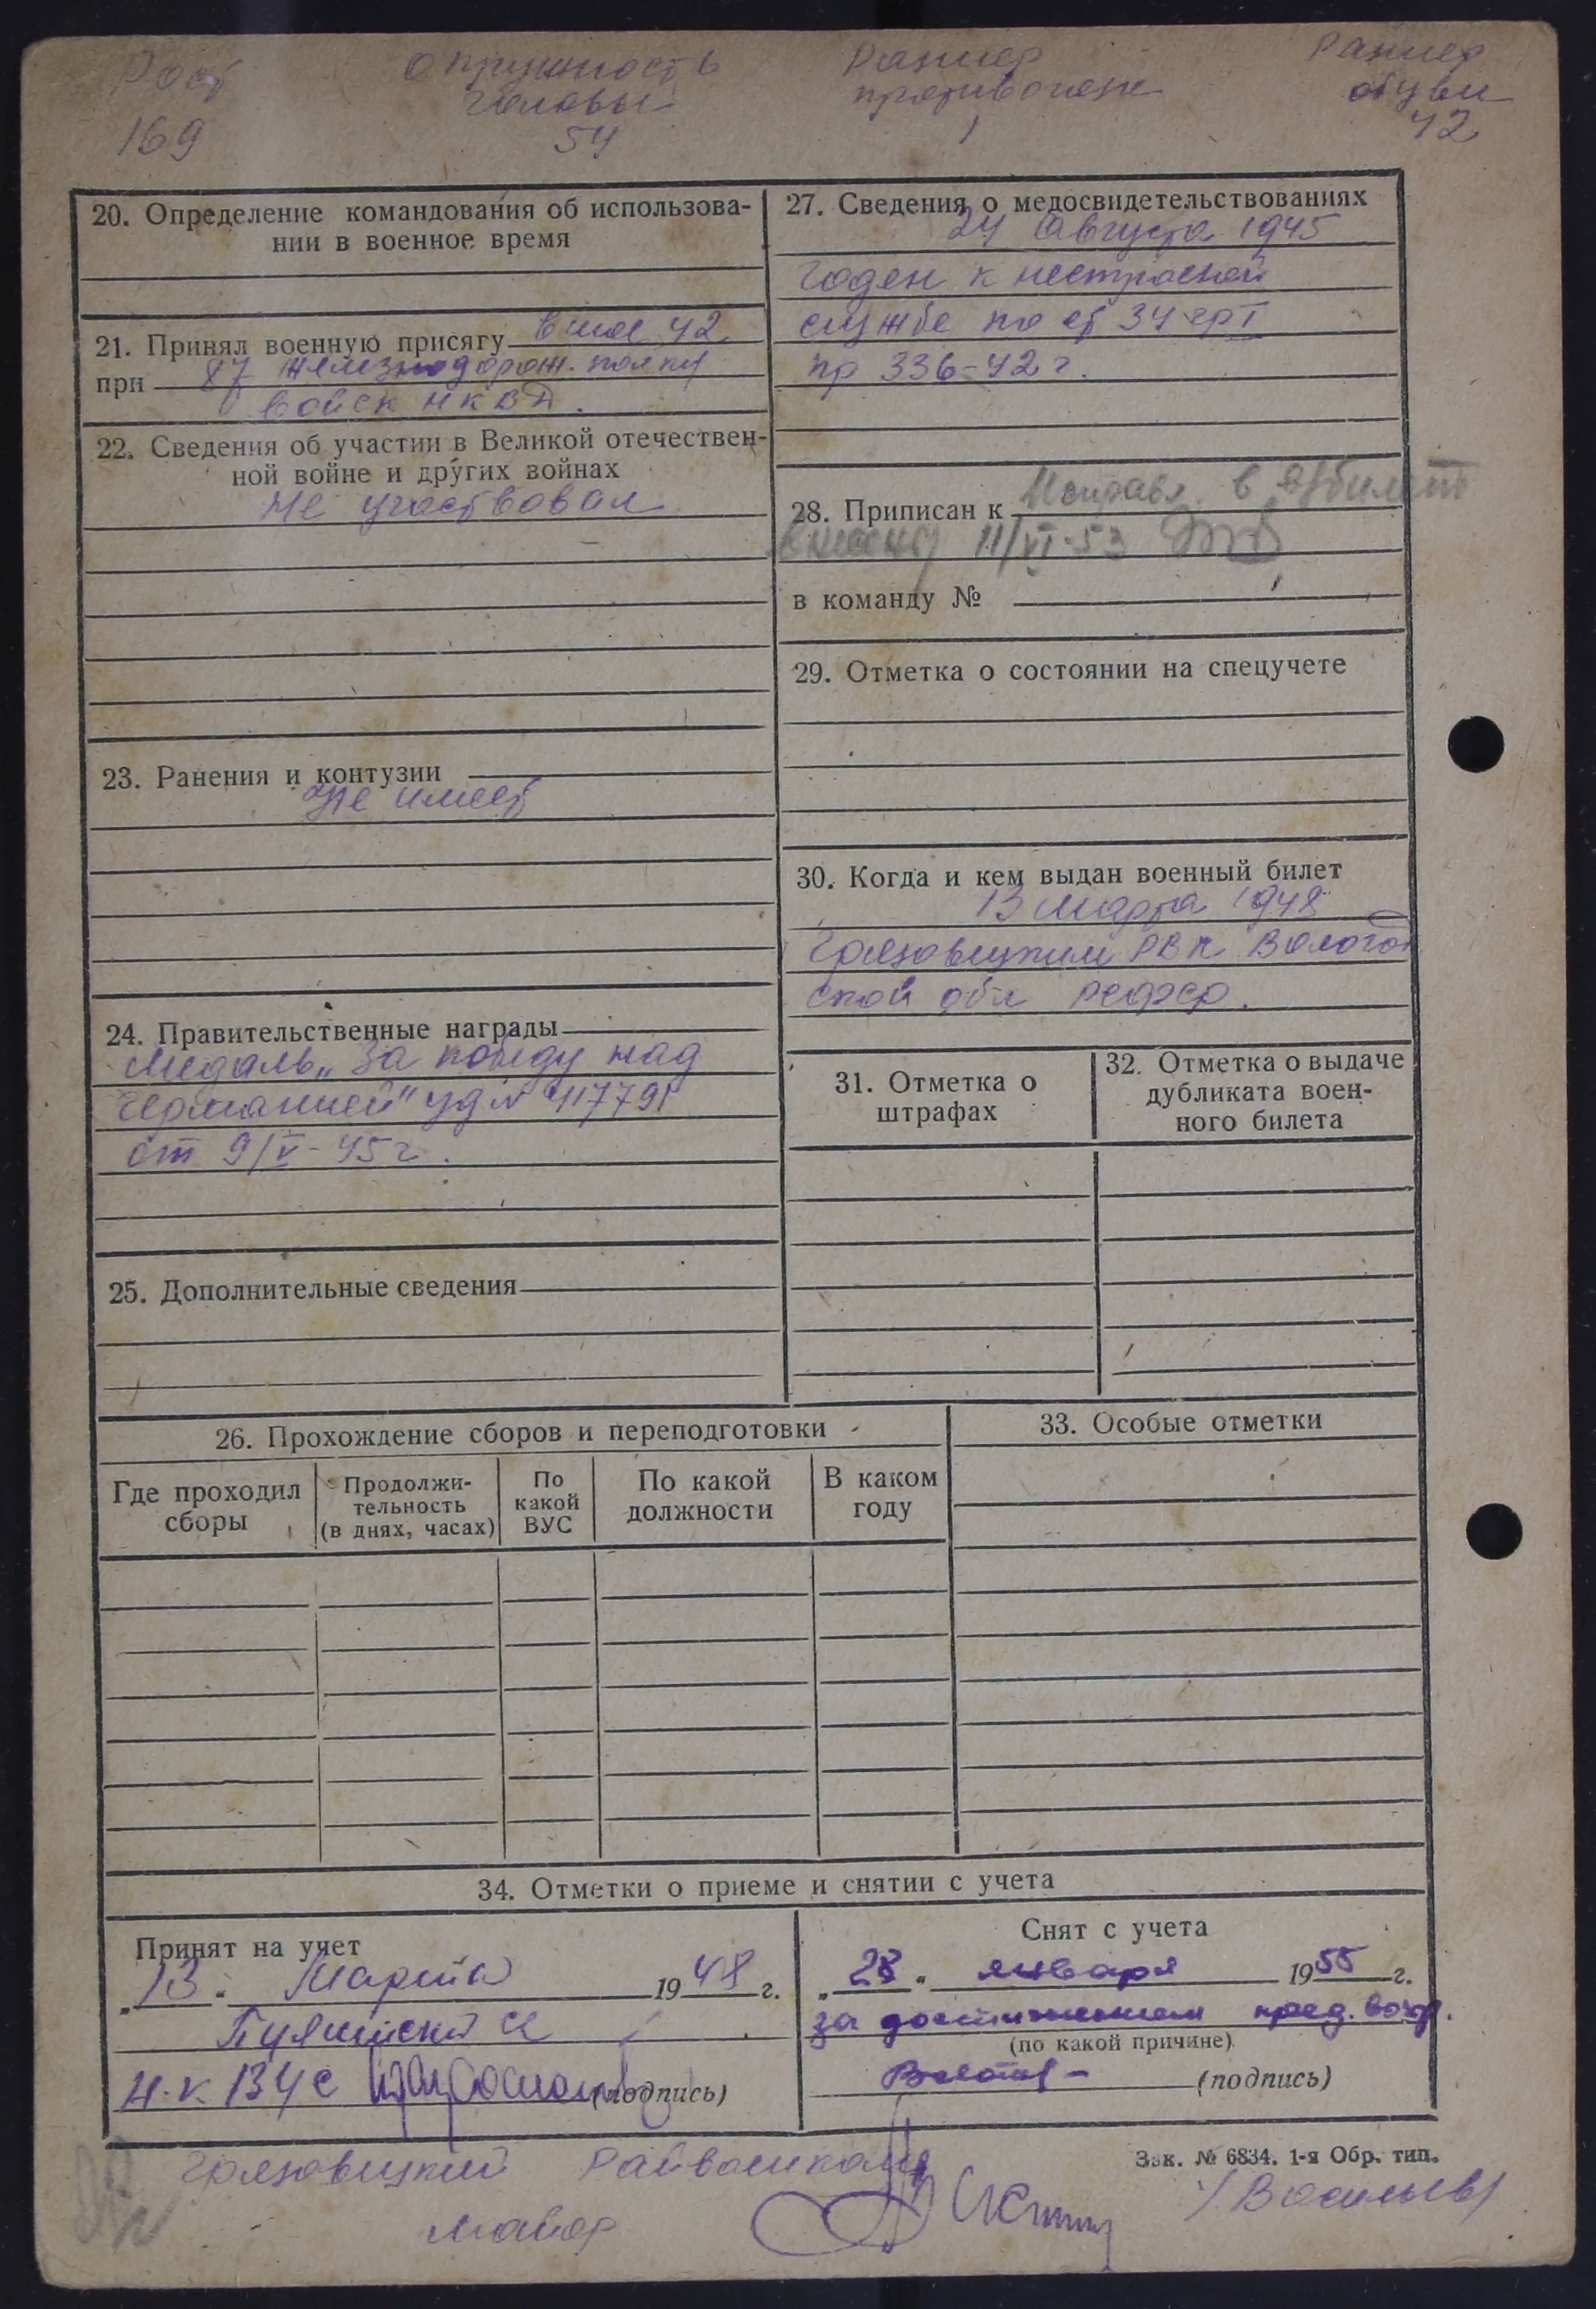 Рост Окружность Размер Размер
головы противогаза обуви
169 54 1 42
20. Определение командования об использова-
нии в военное время
21. Принял военную присягу в мае 42
при 87 железнодорож. полку
войск НКВД.
22. Сведения об участии в Великой отечествен-
ной войне и других войнах
не участвовал
23. Ранения и контузии
не имеет
24. Правительственные награды
Медаль „За победу над
Германией" уд №
от 9/V-45 г.
25. Дополнительные сведения
27. Сведения о медосвидетельствованиях
24 августа 1945
годен к нестроевой
службе по ст 34 гр I
пр 336-42 г.
28. Приписан к в в/билет
11/VI-53
в команду №
29. Отметка о состоянии на спецучете
30. Когда и кем выдан военный билет
13 марта 1948
Грязовецким РВК Вологод
ской обл РСФСР.
31. Отметка о
штрафах
32. Отметка о выдаче
дубликата воен-
ного билета
26. Прохождение сборов и переподготовки
Где проходил
сборы
Продолжи-
тельность
(в днях, часах)
По
какой
ВУС
По какой
должности
В каком
году
33. Особые отметки
34. Отметки о приеме и снятии с учета
Принят на учет
„13" Марта 1948 г.
(подпись)
Снят с учета
„28" января 1955 г.
за достижением пред. возр.
(по какой причине)
(подпись)
Зак. № 6834. 1-я Обр. тип.
Грязовецкий Райвоенком
майор /Васильев/